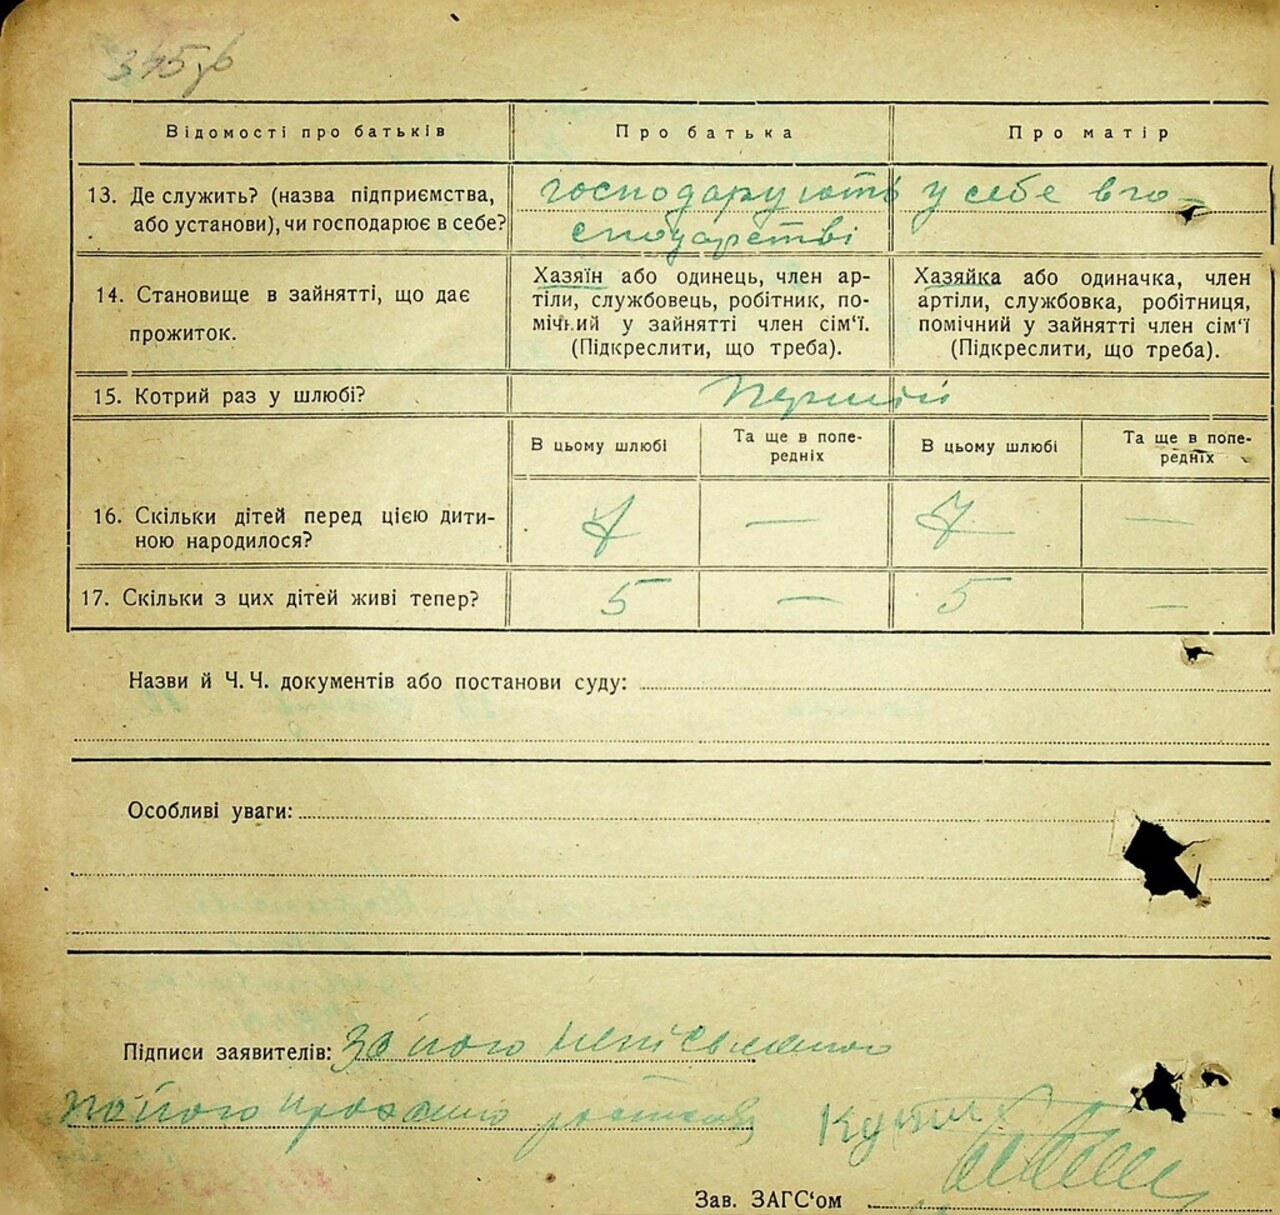 345
Відомості про батьків Про батька Про матір
13. Де служить? (назва підприємства, або установи), чи господарює в себе? господарують у себе в го-
сподарстві
14. Становище в зайнятті, що дає прожиток.
Хазяїн або одинець, член ар-
тіли, службовець, робітник, по-
мічний у зайнятті член сім‘ї.
(Підкреслити, що треба).
Хазяйка або одиначка, член
артіли, службовка, робітниця,
помічний у зайнятті член сім‘ї
(Підкреслити, що треба).
15. Котрий раз у шлюбі? Перший
В цьому шлюбі Та ще в попе-
редніх В цьому шлюбі Та ще в попе-
редніх
16. Скільки дітей перед цією дити-
ною народилося? 7 — 7 —
17. Скільки з цих дітей живі тепер? 5 — 5 —
Назви й Ч. Ч. документів або постанови суду:
Особливі уваги:
Підписи заявителів: За його неписьменного
по його
Зав. ЗАГС‘ом